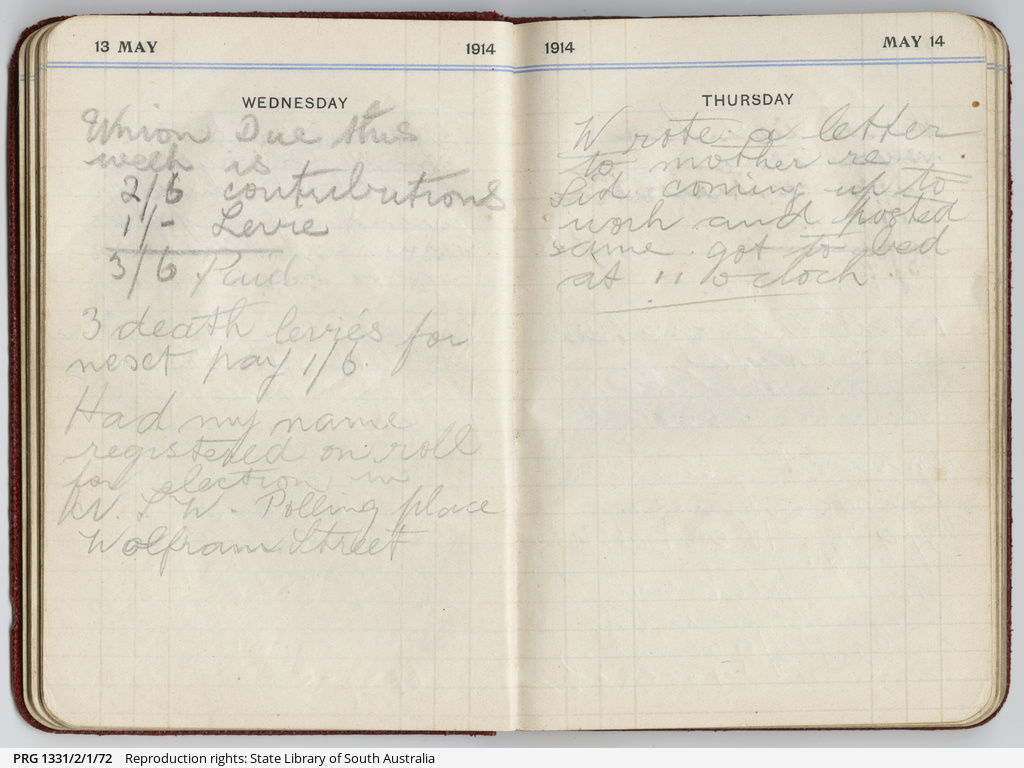 13 MAY 1914
WEDNESDAY
Union Due this
week is
2/6 contributions
1/- Levie
3/6 Paid
3 death levies for
nesct pay 1/6
Had my name
registered on roll
for election in
N. S. W. Polling place
Wolfram Street
1914 MAY 14
THURSDAY
Wrote a letter
to mother re
Sid coming up to
work and posted
same got to bed
at 11 o'cloch
PRG 1331/2/1/72 Reproduction rights: State Library of South Australia